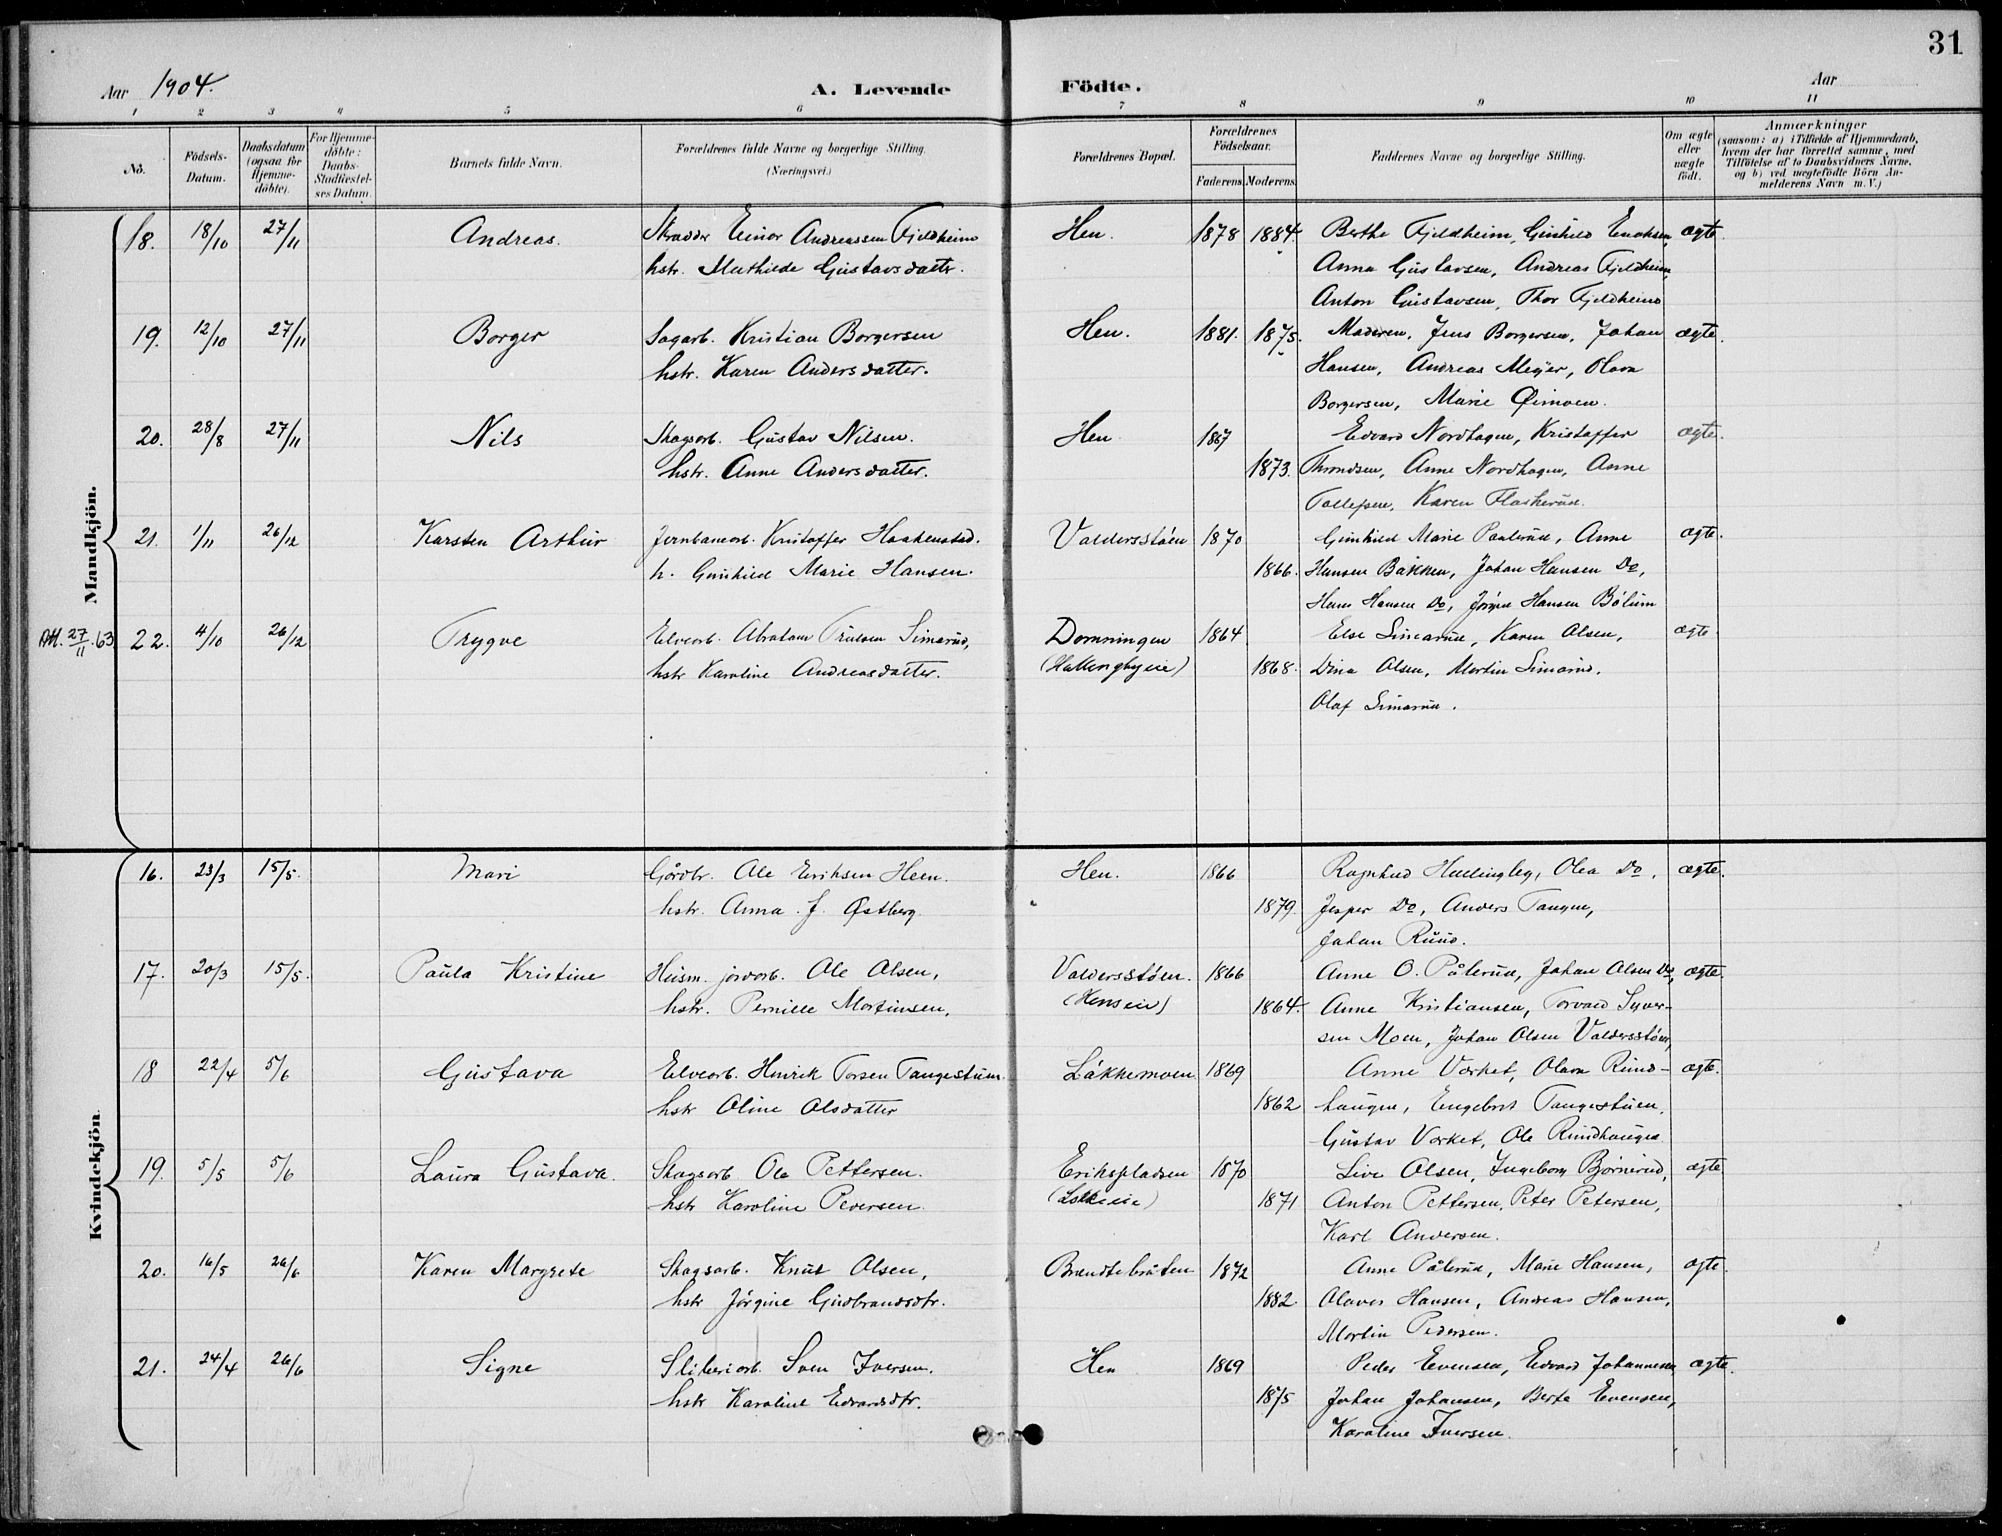 31
Aar 1904. A. Levende Födte. Aar
1 2 3 4 5 6 7 8 9 10 11
No. Födsels-Datum. Daabsdatum (ogsaa for Hjemme-döbte). For Hjemme-döbte: Daabs-Stadfæstel-ses Datum. Barnets fulde Navn. Forældrenes fulde Navne og borgerlige Stilling. (Næringsvei.) Forældrenes Bopæl. Forældrenes Födselsaar. Faderens. Moderens. Faddernes Navne og borgerlige Stilling. Om ægte eller uægte födt. Anmærkninger (saasom: a) i Tilfælde af Hjemmedaab, hvem der har forrettet samme, med Tilföielse af to Daabsvidners Navne, og b) ved uægtefödte Börn An-melderens Navn m. V.)
Mandkjön.
18. 18/10 27/11 Andreas. Skrædder Einar Andreassen Fjeldheim Hen. 1878 1884. Berthe Fjeldheim, Gunhild Enoksen, ægte.
hstr. Mathilde Gustavsdatter. Anna Gustavsen, Andreas Fjeldheim,
Anton Gustavsen, Thor Fjeldheim
19. 12/10 27/11 Borger Sagarb. Kristian Borgersen Hen. 1881. 1875. Moderen, Jens Borgersen, Johan ægte.
hstr. Karen Andersdatter. Hansen, Andreas Meyer, Olava
Borgersen, Marie Øimoen.
20. 28/8 27/11 Nils Skogsarb. Gustav Nilsen. Hen. 1867 Edvard Nordhagen, Kristoffer ægte.
hstr. Anne Andersdatter. 1873. Throndsen, Anne Nordhagen, Anne
Tollefsen, Karen Flaskerud.
21. 1/11 26/12 Karsten Arthur Jernbanearb. Kristoffer Haakenstad. Valdersstøen 1870 Gunhild Marie Paalerud, Anne ægte.
h. Gunhild Marie Hansen. 1866. Hansen Bakken, Johan Hansen Do,
Hans Hansen Do, Jørgen Hansen Bølum
Att. 27/11.63 22. 4/10 26/12 Trygve Elvearb. Abraham Trulsen Simarud, Domningen 1864 Else Simarud, Karen Olsen, ægte
hstr Karoline Andreasdatter. (Hallingbyeie) 1868. Dina Olsen, Martin Simarud.
Olaf Simarud.
Kvindekjön.
16. 23/3 15/5. Mari Gårdbr. Ole Eriksen Heen. Hen. 1866 Ragnhild Hallingby, Olea Do, ægte.
hstr. Anna J. Østberg. 1879. Jesper Do, Anders Tangen,
Johan Ruud.
17. 20/3 15/5. Paula Kristine Husm. jordarb. Ole Olsen, Valdersstøen. 1866 Anne O. Pålerud, Johan Olsen Do, ægte.
hstr. Pernille Mortinsen, (Henseie) 1864. Anne Kristiansen, Torvald Syver-
sen Moen, Johan Olsen Valdersstøen,
18 22/4 5/6 Gustava Elvearb. Henrik Torsen Tangestuen. Låkkemoen 1869 Anne Vorket, Olava Rund- ægte.
hstr Oline Olsdatter 1862 haugen, Engebret Tangestuen,
Gustav Vorket, Ole Rundhaugen
19. 5/5 5/6 Laura Gustava. Skogsarb. Ole Pettersen. Erikspladsen 1870 Live Olsen, Ingeborg Bjørnerud, ægte
hstr Karoline Pedersen. 1871 Anton Pettersen, Peter Petersen,
Karl Andersen.
20. 16/5 26/6 Karen Margrete Skogsarb. Knut Olsen, Brændtebråten 1872 Anne Pålerud, Marie Hansen, ægte.
hstr Jørgine Gudbrandsdtr. 1882. Olaves Hansen, Andreas Hansen,
Martin Pedersen.
21. 24/4 26/6 Signe Sliberiarb. Sven Iversen. Hen 1869 Peder Evensen, Edvard Johannesen, ægte.
hstr Karoline Edvardsdtr. 1875 Johan Johansen, Berte Evensen,
Karoline Iversen.